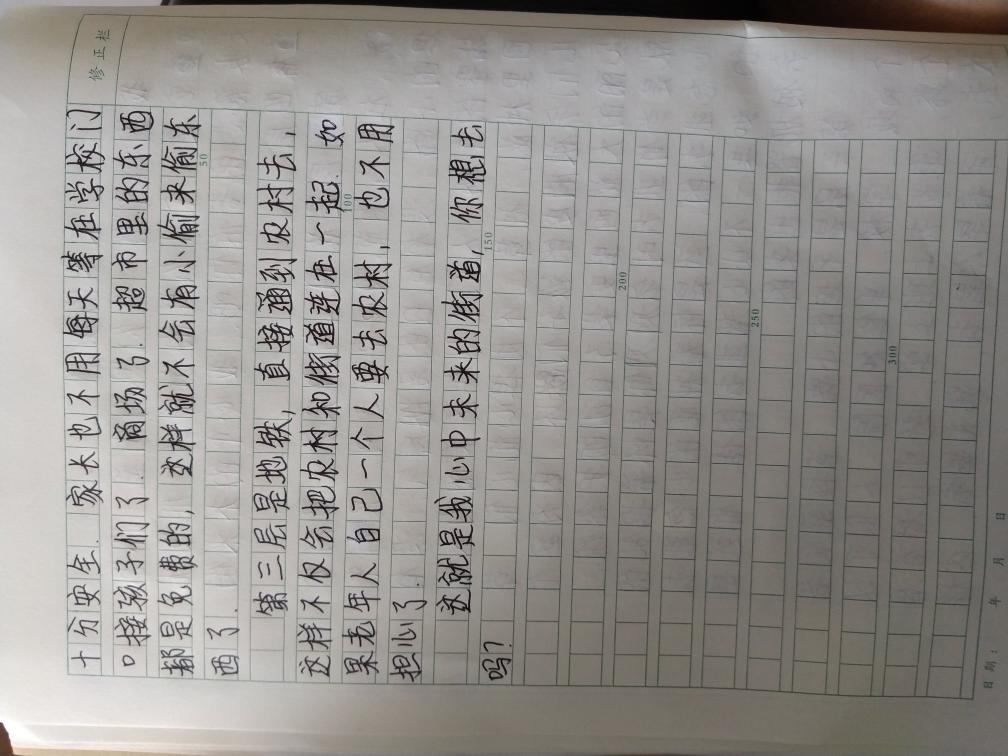 修正栏
十分安全.家长也不用每天等在学校门
口接孩子们了.商场了.超市里的东西
都是免费的,这样就不会有小偷来偷东
西了.
50
第三层是地铁,直接通到农村去,
这样不仅会把农村和街道连在一起.如
100
果老年人自己一个人要去农村,也不用
担心了.
这就是我心中未来的街道,你想去
150
吗?
200
250
300
日期: 年 月 日